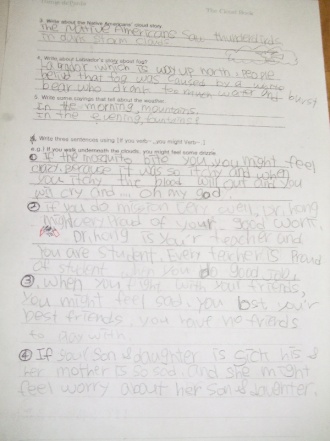 The Cloud Book
3. Write about the Native Americans' cloud story.
The Native Americans say thunderbirds
4. Write about Labrador's story about fog?
Labrador which is way up north, people
that fog was caused by a
bear who drank too much water and burst
5. Write some sayings that tell about the weather.
In the morning mountains,
In the evening fountains
Write three sentences using [If you verb~, you might verb~.]
e.g.) If you walk underneath the clouds, you might feel some drizzle.
① If the mosquito bite you, you might feel
crazy because it was so itchy and when
you itchy the blood will out and you
will cry and ... oh my god!
② If you do very well, Dr. hong
might very Proud of your good work,
Dr. hong is your teacher and
you are student. Every teacher is Proud
of student when you do good Job,
③ When you fight with your friends,
you might feel sad, you lost your
best friends, you have no friends
to play with
④ If your son & daughter is sick his &
her mother is so sad, and she might
feel worry about her son & daughter.